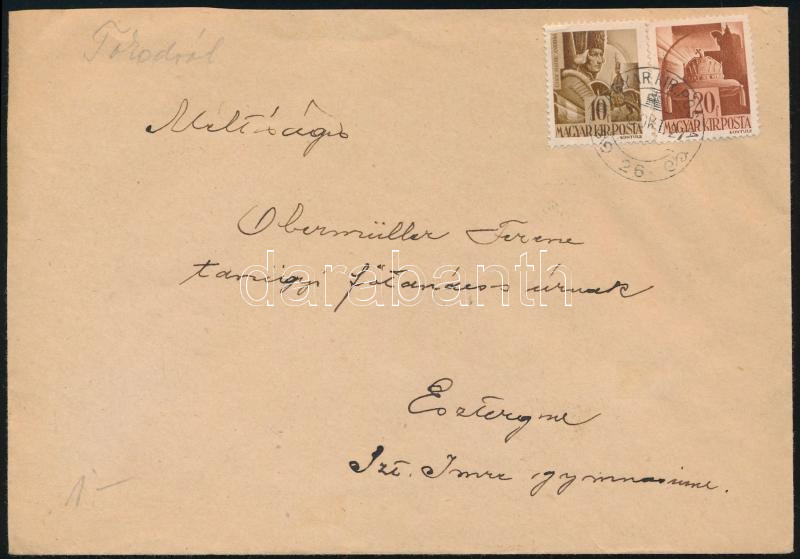 Méltóságos
Obermüller Ferenc
tanügyi főtanácsos úrnak
Esztergom
Szt. Imre gymnasium.
10
MAGYAR KIR. POSTA
20f
MAGYAR KIR. POSTA
26
darabanth
1-